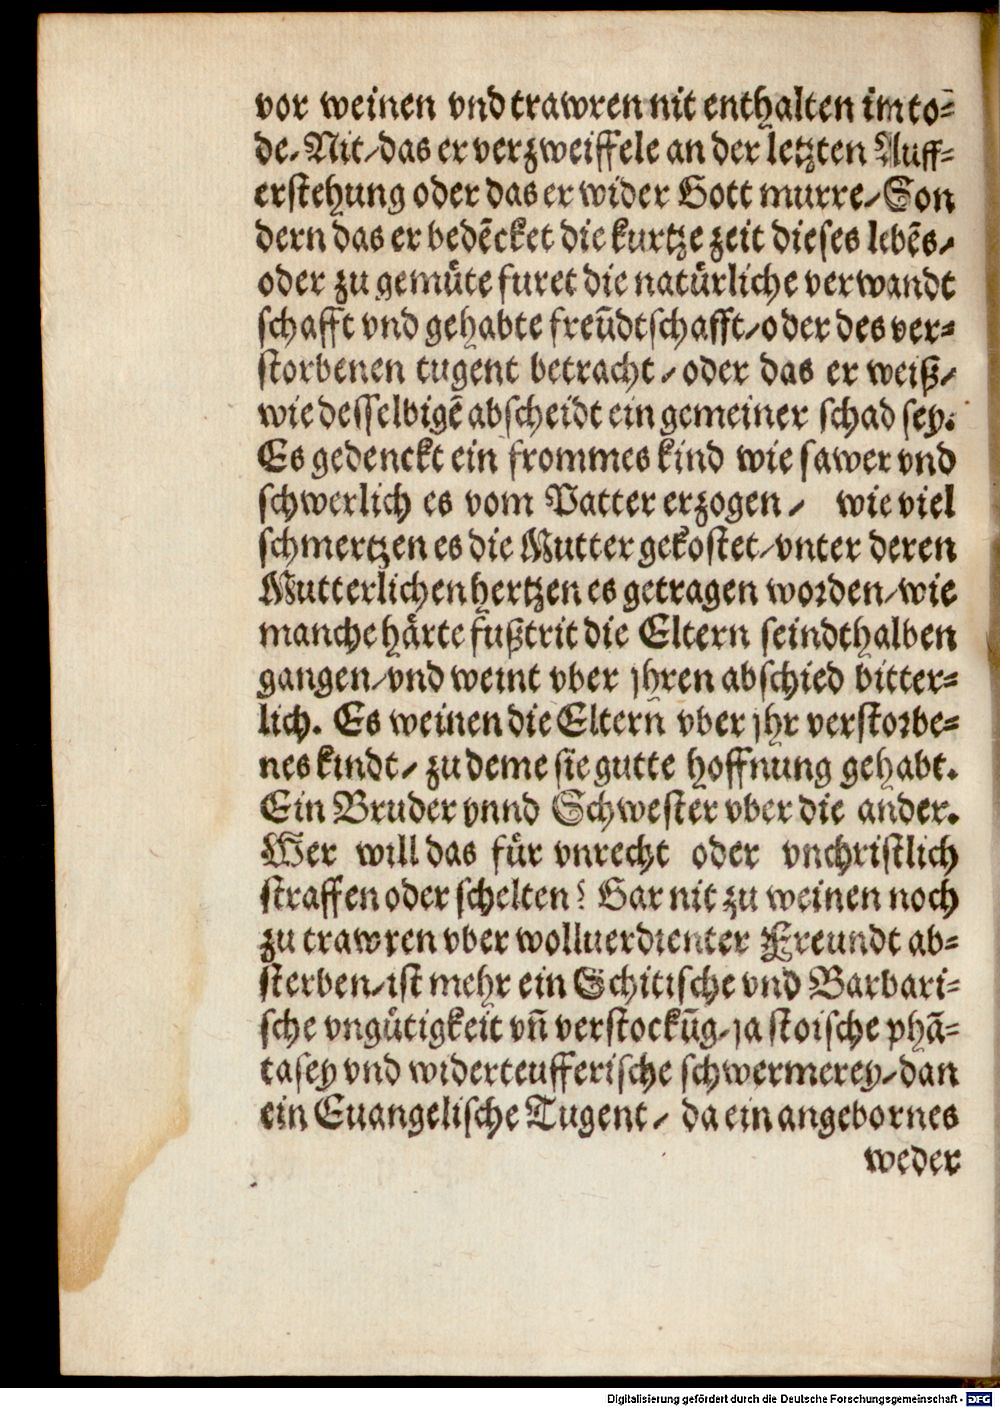 vor weinen vnd trawren nit enthalten im to⸗
de. Nit/ das er verzweiffele an der letzten Auff⸗
erstehung oder das er wider Gott murre/ Son
dern das er bedẽcket die kurtze zeit dieses lebẽs/
oder zu gemüte furet die natürliche verwandt
schafft vnd gehabte freũdtschafft/ oder des ver⸗
storbenen tugent betracht/ oder das er weiß/
wie desselbigẽ abscheidt ein gemeiner schad sey.
Es gedenckt ein frommes kind wie sawer vnd
schwerlich es vom Vatter erzogen/ wie viel
schmertzen es die Mutter gekostet/ vnter deren
Mutterlichen hertzen es getragen worden/ wie
manche härte fußtrit die Eltern seindthalben
gangen/ vnd weint vber jhren abschied bitter⸗
lich. Es weinen die Eltern vber jhr verstorbe⸗
nes kindt/ zu deme sie gutte hoffnung gehabt.
Ein Bruder vnnd Schwester vber die ander.
Wer will das für vnrecht oder vnchristlich
straffen oder schelten? Gar nit zu weinen noch
zu trawren vber wolluerdienter Freundt ab⸗
sterben/ ist mehr ein Schitische vnd Barbari⸗
sche vngütigkeit vñ verstockũg/ ja stoische phã⸗
tasey vnd widerteufferische schwermerey/ dan
ein Euangelische Tugent/ da ein angebornes
weder
Digitalisierung gefördert durch die Deutsche Forschungsgemeinschaft - DFG